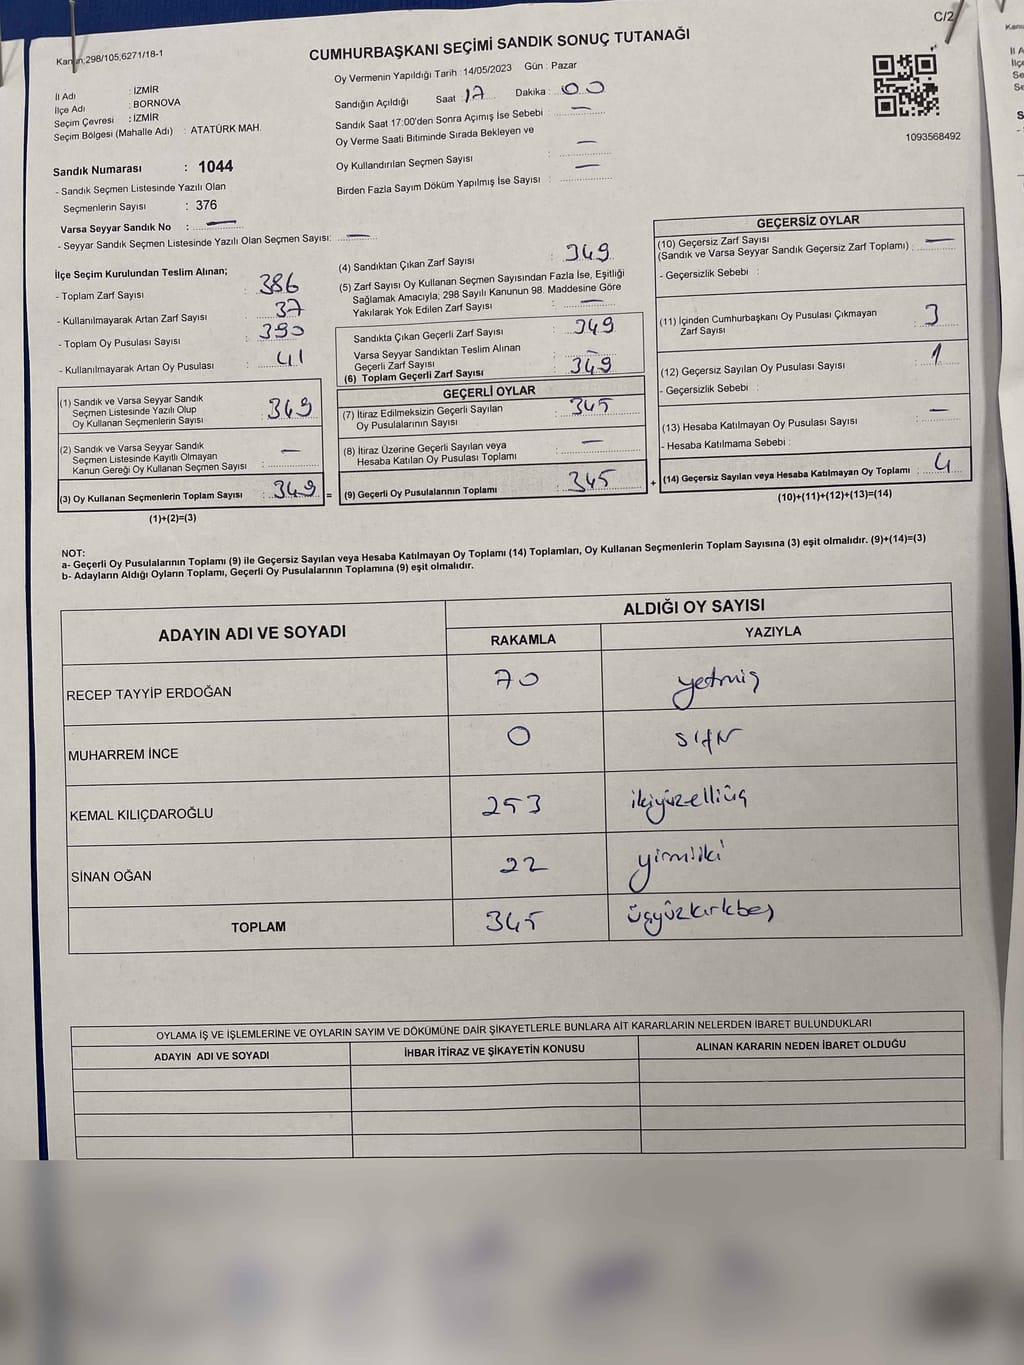 C/2
Kanun,298/105,6271/18-1
CUMHURBAŞKANI SEÇİMİ SANDIK SONUÇ TUTANAĞI
Oy Vermenin Yapıldığı Tarih :14/05/2023 Gün : Pazar
İl Adı : İZMİR
İlçe Adı : BORNOVA
Seçim Çevresi : İZMİR
Seçim Bölgesi (Mahalle Adı) : ATATÜRK MAH.
Sandığın Açıldığı Saat 17 Dakika : 00
Sandık Saat 17:00'den Sonra Açımış İse Sebebi : —
Oy Verme Saati Bitiminde Sırada Bekleyen ve
Oy Kullandırılan Seçmen Sayısı : —
Birden Fazla Sayım Döküm Yapılmış İse Sayısı : —
1093568492
Sandık Numarası : 1044
- Sandık Seçmen Listesinde Yazılı Olan
Seçmenlerin Sayısı : 376
Varsa Seyyar Sandık No : —
- Seyyar Sandık Seçmen Listesinde Yazılı Olan Seçmen Sayısı: —
İlçe Seçim Kurulundan Teslim Alınan;
- Toplam Zarf Sayısı : 386
- Kullanılmayarak Artan Zarf Sayısı : 37
- Toplam Oy Pusulası Sayısı : 390
- Kullanılmayarak Artan Oy Pusulası : 41
(1) Sandık ve Varsa Seyyar Sandık
Seçmen Listesinde Yazılı Olup
Oy Kullanan Seçmenlerin Sayısı : 349
(2) Sandık ve Varsa Seyyar Sandık
Seçmen Listesinde Kayıtlı Olmayan
Kanun Gereği Oy Kullanan Seçmen Sayısı : —
(3) Oy Kullanan Seçmenlerin Toplam Sayısı : 349 =
(1)+(2)=(3)
(4) Sandıktan Çıkan Zarf Sayısı : 349
(5) Zarf Sayısı Oy Kullanan Seçmen Sayısından Fazla İse, Eşitliği
Sağlamak Amacıyla; 298 Sayılı Kanunun 98. Maddesine Göre
Yakılarak Yok Edilen Zarf Sayısı : —
Sandıkta Çıkan Geçerli Zarf Sayısı : 349
Varsa Seyyar Sandıktan Teslim Alınan
Geçerli Zarf Sayısı : —
(6) Toplam Geçerli Zarf Sayısı : 349
GEÇERLİ OYLAR
(7) İtiraz Edilmeksizin Geçerli Sayılan
Oy Pusulalarının Sayısı : 345
(8) İtiraz Üzerine Geçerli Sayılan veya
Hesaba Katılan Oy Pusulası Toplamı : —
(9) Geçerli Oy Pusulalarının Toplamı : 345 +
GEÇERSİZ OYLAR
(10) Geçersiz Zarf Sayısı
(Sandık ve Varsa Seyyar Sandık Geçersiz Zarf Toplamı) : —
- Geçersizlik Sebebi :
(11) İçinden Cumhurbaşkanı Oy Pusulası Çıkmayan
Zarf Sayısı : 3
(12) Geçersiz Sayılan Oy Pusulası Sayısı : 1
- Geçersizlik Sebebi :
(13) Hesaba Katılmayan Oy Pusulası Sayısı : —
- Hesaba Katılmama Sebebi :
(14) Geçersiz Sayılan veya Hesaba Katılmayan Oy Toplamı : 4
(10)+(11)+(12)+(13)=(14)
NOT:
a- Geçerli Oy Pusulalarının Toplamı (9) ile Geçersiz Sayılan veya Hesaba Katılmayan Oy Toplamı (14) Toplamları, Oy Kullanan Seçmenlerin Toplam Sayısına (3) eşit olmalıdır. (9)+(14)=(3)
b- Adayların Aldığı Oyların Toplamı, Geçerli Oy Pusulalarının Toplamına (9) eşit olmalıdır.
ADAYIN ADI VE SOYADI
ALDIĞI OY SAYISI
RAKAMLA YAZIYLA
RECEP TAYYİP ERDOĞAN 70 yetmiş
MUHARREM İNCE 0 sıfır
KEMAL KILIÇDAROĞLU 253 ikiyüzelliüç
SİNAN OĞAN 22 yirmiiki
TOPLAM 345 üçyüzkırkbeş
OYLAMA İŞ VE İŞLEMLERİNE VE OYLARIN SAYIM VE DÖKÜMÜNE DAİR ŞİKAYETLERLE BUNLARA AİT KARARLARIN NELERDEN İBARET BULUNDUKLARI
ADAYIN ADI VE SOYADI İHBAR İTİRAZ VE ŞİKAYETİN KONUSU ALINAN KARARIN NEDEN İBARET OLDUĞU